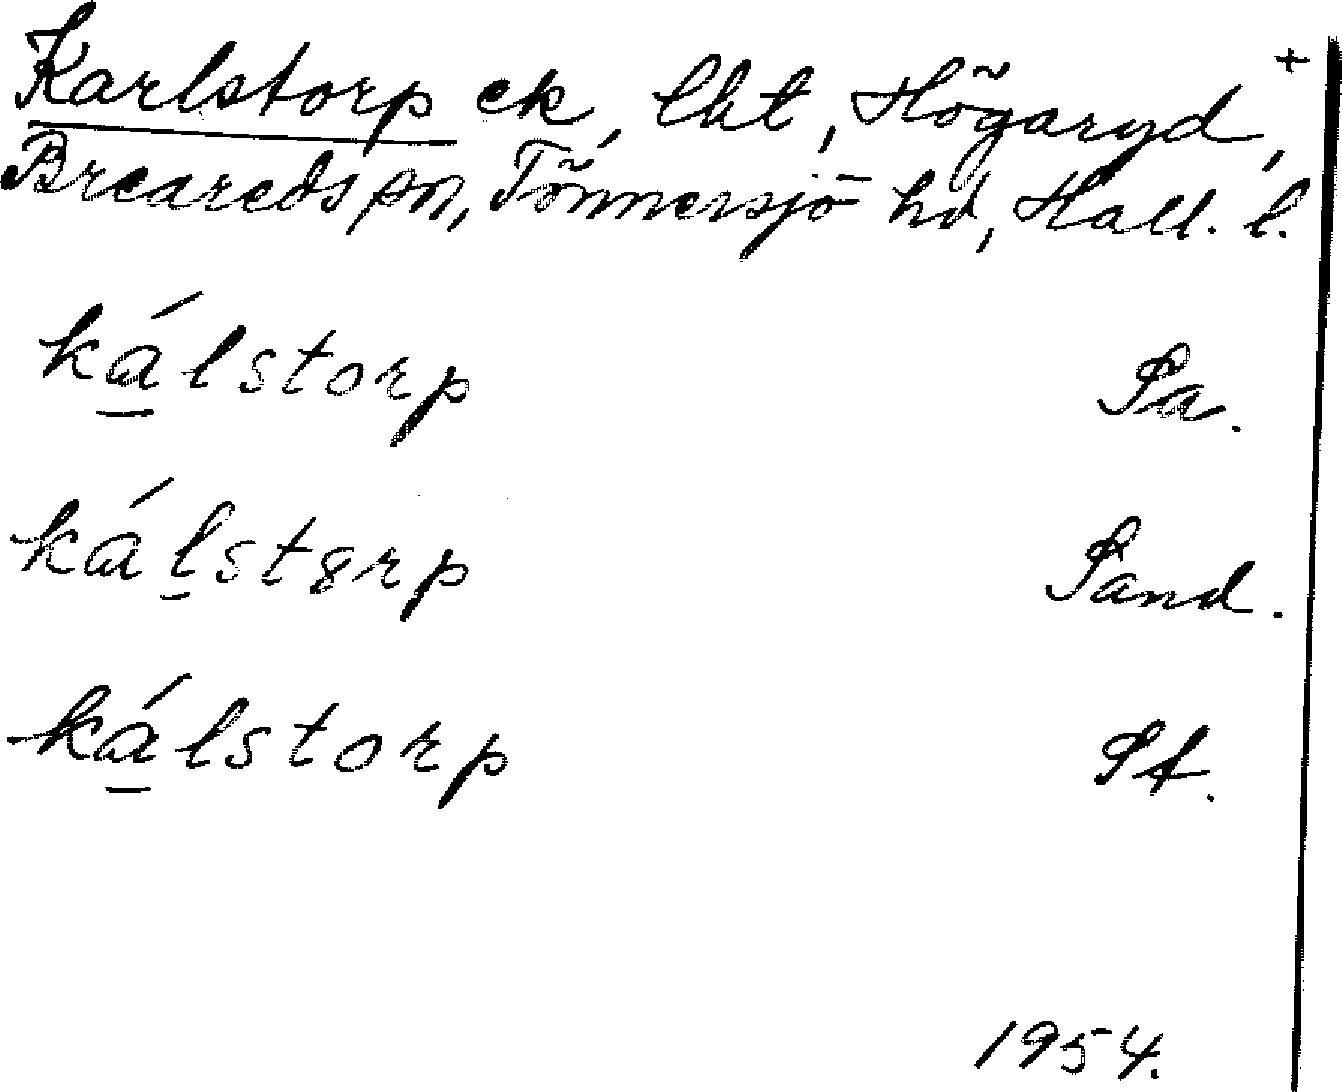 Karlstorp ek, lht, Högaryd, +
Breareds sn, Tönnersjö hd, Hall. l.
ká̱lstorp Sa.
káḻst8rp Sand.
ká̱lstorp St.
1954.